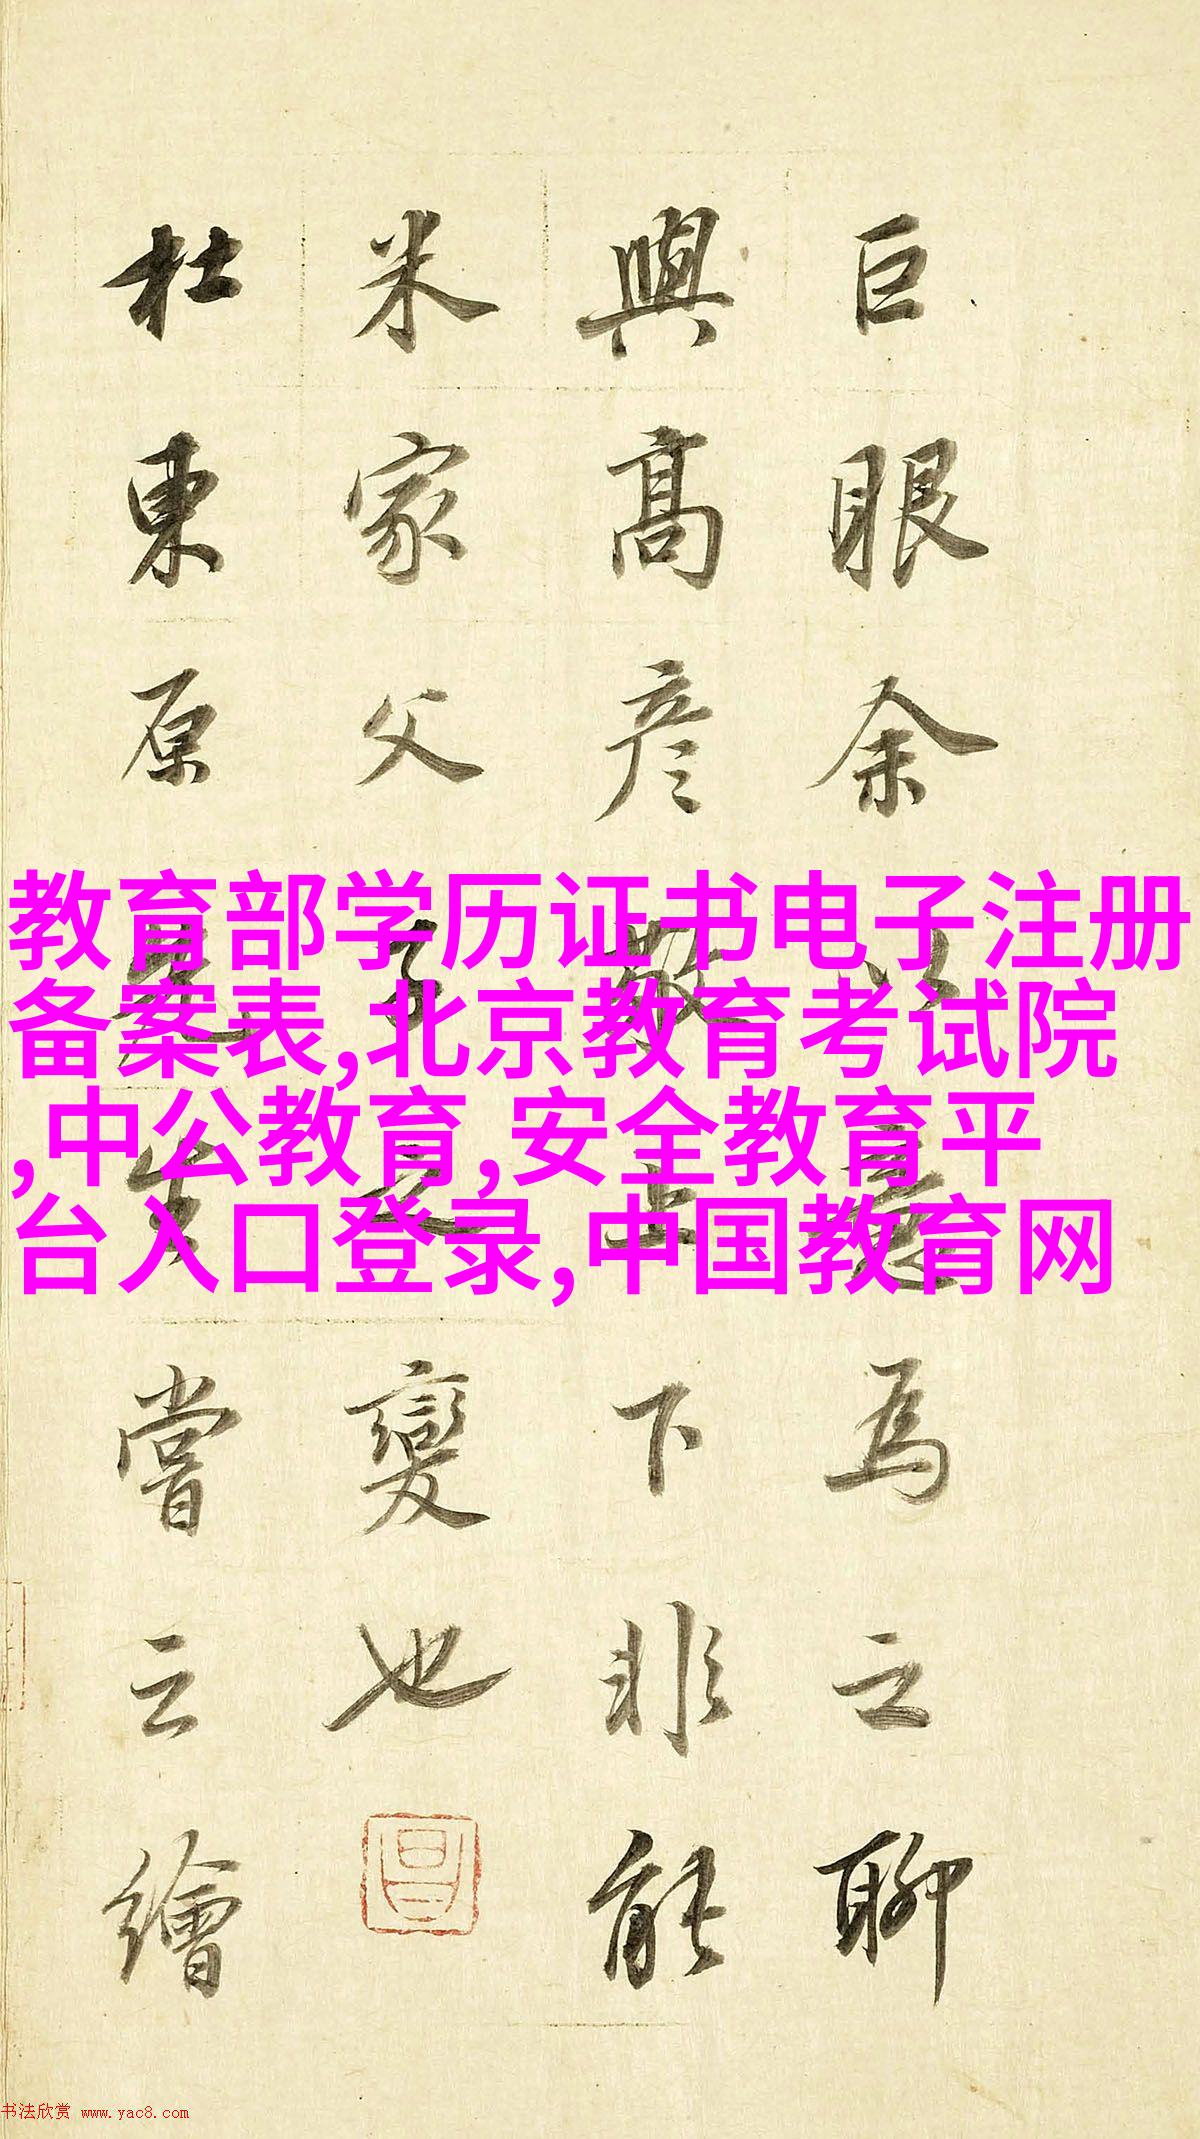 巨眼余以意為之聊
與高彦敬上下非能
米家父子之變也
杜東原先生嘗云繪
教育部学历证书电子注册
备案表,北京教育考试院
,中公教育,安全教育平
台入口登录,中国教育网
书法欣赏 www.yac8.com